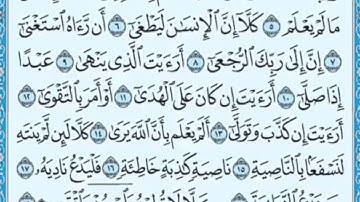 مَا لَمْ يَعْلَمْ ٥ كَلَّآ إِنَّ ٱلْإِنسَٰنَ لَيَطْغَىٰٓ ٦ أَن رَّءَاهُ ٱسْتَغْنَىٰٓ
٧ إِنَّ إِلَىٰ رَبِّكَ ٱلرُّجْعَىٰٓ ٨ أَرَءَيْتَ ٱلَّذِى يَنْهَىٰ ٩ عَبْدًا
إِذَا صَلَّىٰٓ ١٠ أَرَءَيْتَ إِن كَانَ عَلَى ٱلْهُدَىٰٓ ١١ أَوْ أَمَرَ بِٱلتَّقْوَىٰٓ ١٢
أَرَءَيْتَ إِن كَذَّبَ وَتَوَلَّىٰٓ ١٣ أَلَمْ يَعْلَم بِأَنَّ ٱللَّهَ يَرَىٰ ١٤ كَلَّا لَئِن لَّمْ يَنتَهِ
لَنَسْفَعًۢا بِٱلنَّاصِيَةِ ١٥ نَاصِيَةٍ كَٰذِبَةٍ خَاطِئَةٍ ١٦ فَلْيَدْعُ نَادِيَهُۥ ١٧